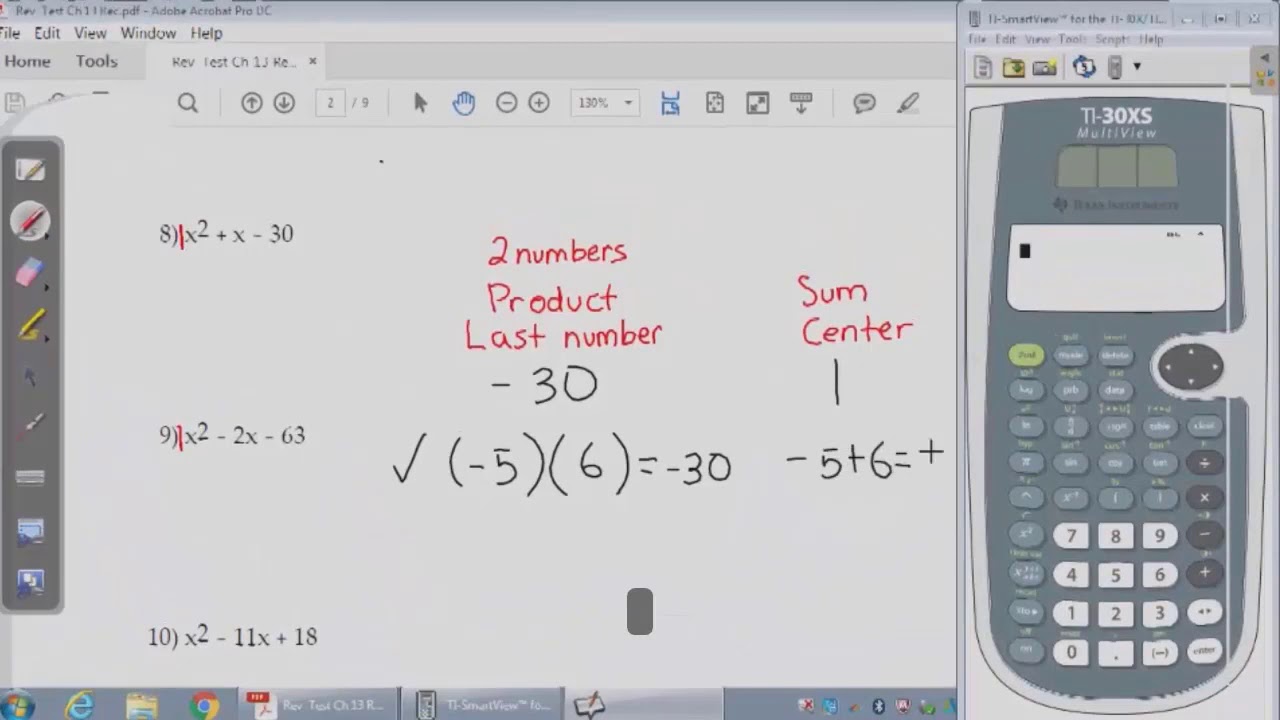 Rev Test Ch 13 Rec.pdf - Adobe Acrobat Pro DC
File Edit View Window Help
Home Tools Rev Test Ch 13 Re... ×
2 / 9 130%
8) 1x² + x - 30
2 numbers
Product Sum
Last number Center
- 30 1
9) 1x² - 2x - 63
✓ (-5)(6) = -30 - 5+6=+
10) x² - 11x + 18
Rev Test Ch 13 R... TI-SmartView™ fo...
TI-SmartView™ for the TI-30X/TI...
File Edit View Tools Scripts Help
TI-30XS
MultiView
TEXAS INSTRUMENTS
2nd mode delete
log prb data
ln table clear
π sin cos tan ÷
^ x⁻¹ ( ) ×
x² 7 8 9 −
4 5 6 +
sto▸ 1 2 3 ◂▸
on 0 . (−) enter